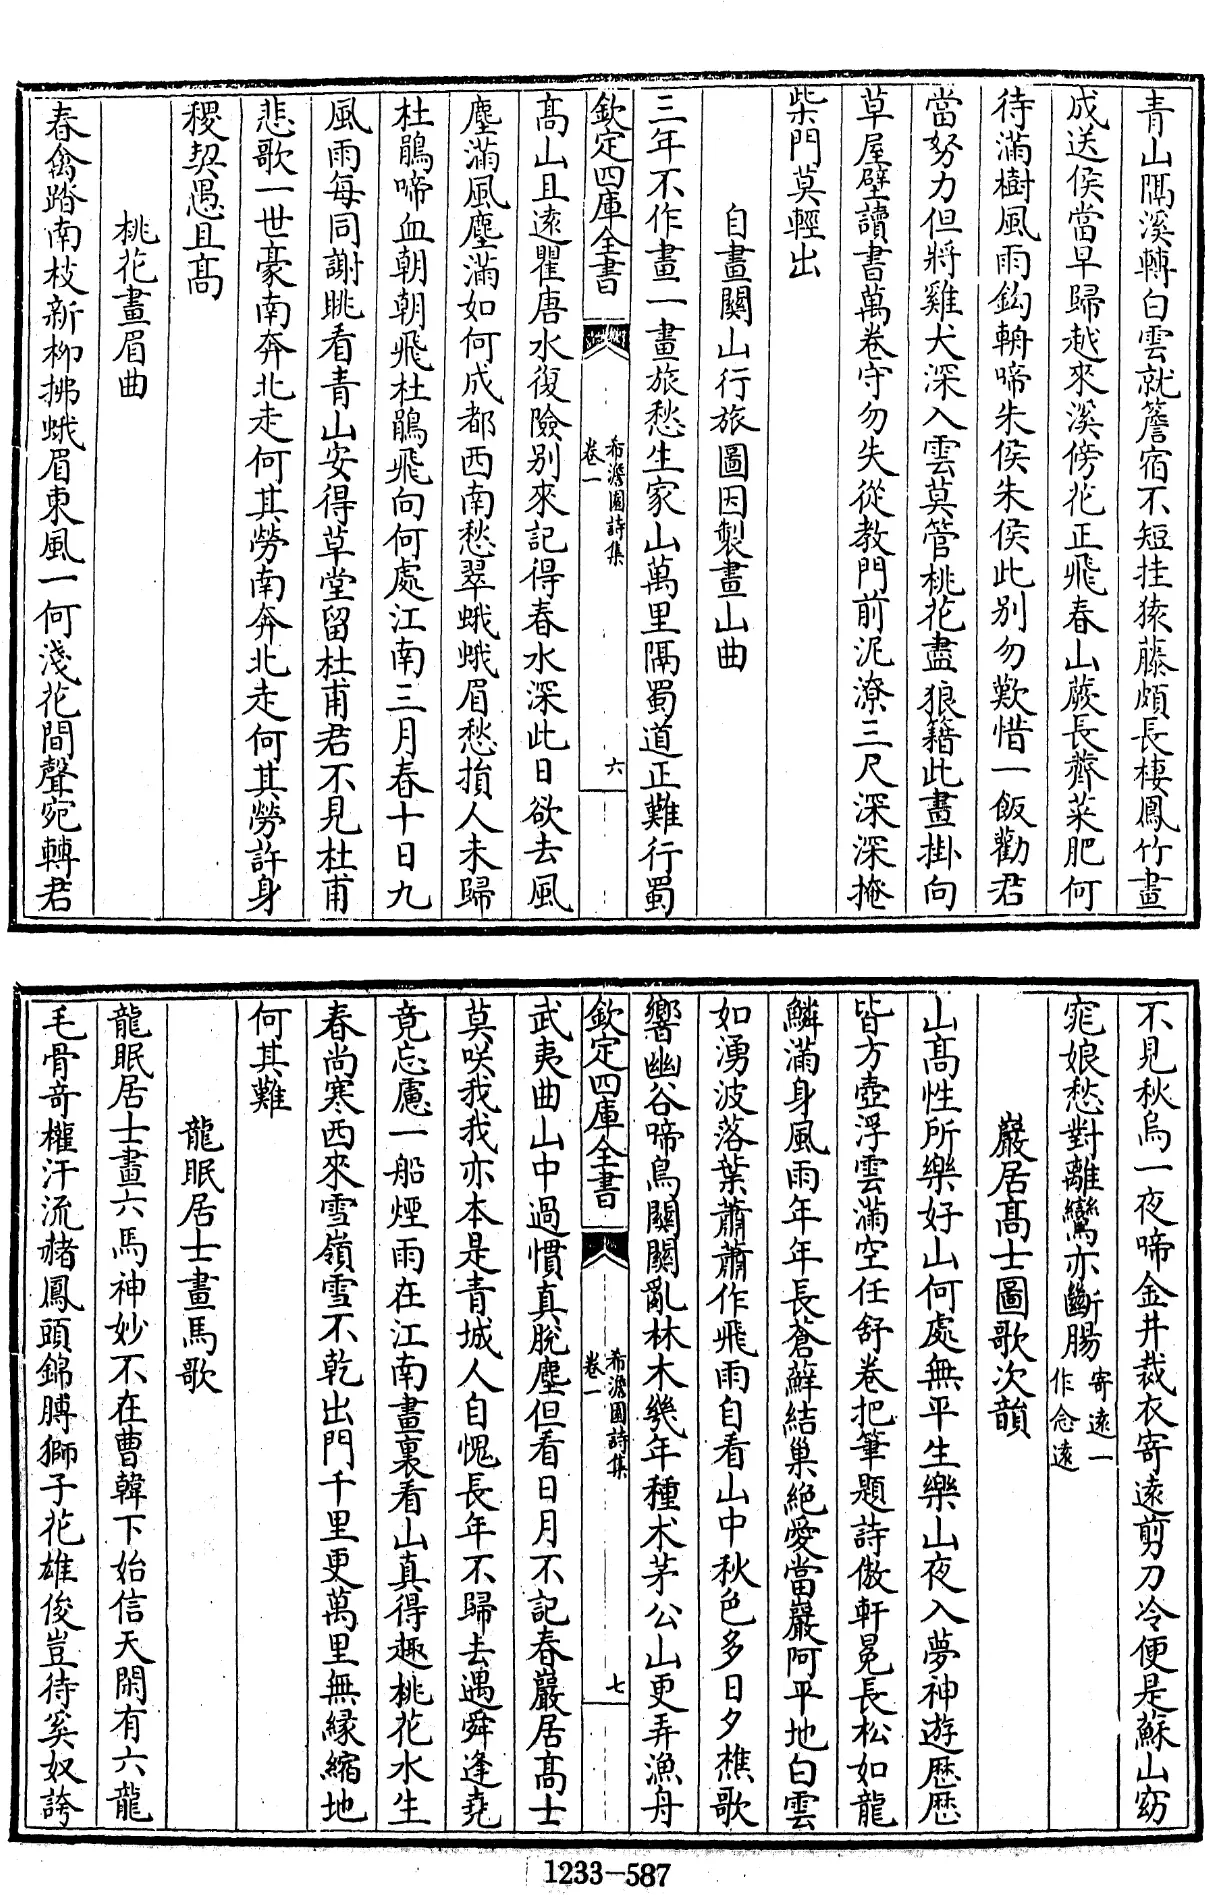 青山隔溪轉白雲就簷宿不短挂猿藤頗長棲鳳竹畫
成送侯當早歸越來溪傍花正飛春山蕨長薺菜肥何
待滿樹風雨鈎輈啼朱侯朱侯此别勿歎惜一飯勸君
當努力但將雞犬深入雲莫管桃花盡狼籍此畫掛向
草屋壁讀書萬卷守勿失從教門前泥潦三尺深深掩
柴門莫輕出
自畫關山行旅圖因製畫山曲
三年不作畫一畫旅愁生家山萬里隔蜀道正難行蜀
欽定四庫全書
希澹園詩集
卷一
六
髙山且逺瞿唐水復險别來記得春水深此日欲去風
塵滿風塵滿如何成都西南愁翠蛾蛾眉愁損人未歸
杜鵑啼血朝朝飛杜鵑飛向何處江南三月春十日九
風雨每同謝眺看青山安得草堂留杜甫君不見杜甫
悲歌一世豪南奔北走何其勞南奔北走何其勞許身
稷契愚且髙
桃花畫眉曲
春禽踏南枝新柳拂蛾眉東風一何淺花間聲宛轉君
不見秋烏一夜啼金井裁衣寄逺剪刀冷便是蘇山窈
窕娘愁對離鸞亦斷腸寄逺一
作念逺
巖居髙士圖歌次韻
山髙性所樂好山何處無平生樂山夜入夢神遊歴歴
皆方壺浮雲滿空任舒卷把筆題詩傲軒冕長松如龍
鱗滿身風雨年年長蒼蘚結巢絶愛當巖阿平地白雲
如湧波落葉蕭蕭作飛雨自看山中秋色多日夕樵歌
響幽谷啼鳥關關亂林木幾年種术茅公山更弄漁舟
欽定四庫全書
希澹園詩集
卷一
七
武夷曲山中過慣真脱塵但看日月不記春巖居髙士
莫咲我我亦本是青城人自愧長年不歸去遇舜逢堯
竟忘慮一船煙雨在江南畫裏看山真得趣桃花水生
春尚寒西來雪嶺雪不乾出門千里更萬里無縁縮地
何其難
龍眠居士畫馬歌
龍眠居士畫六馬神妙不在曹韓下始信天閑有六龍
毛骨竒權汗流赭鳳頭錦膊獅子花雄俊豈待奚奴誇
1233—587